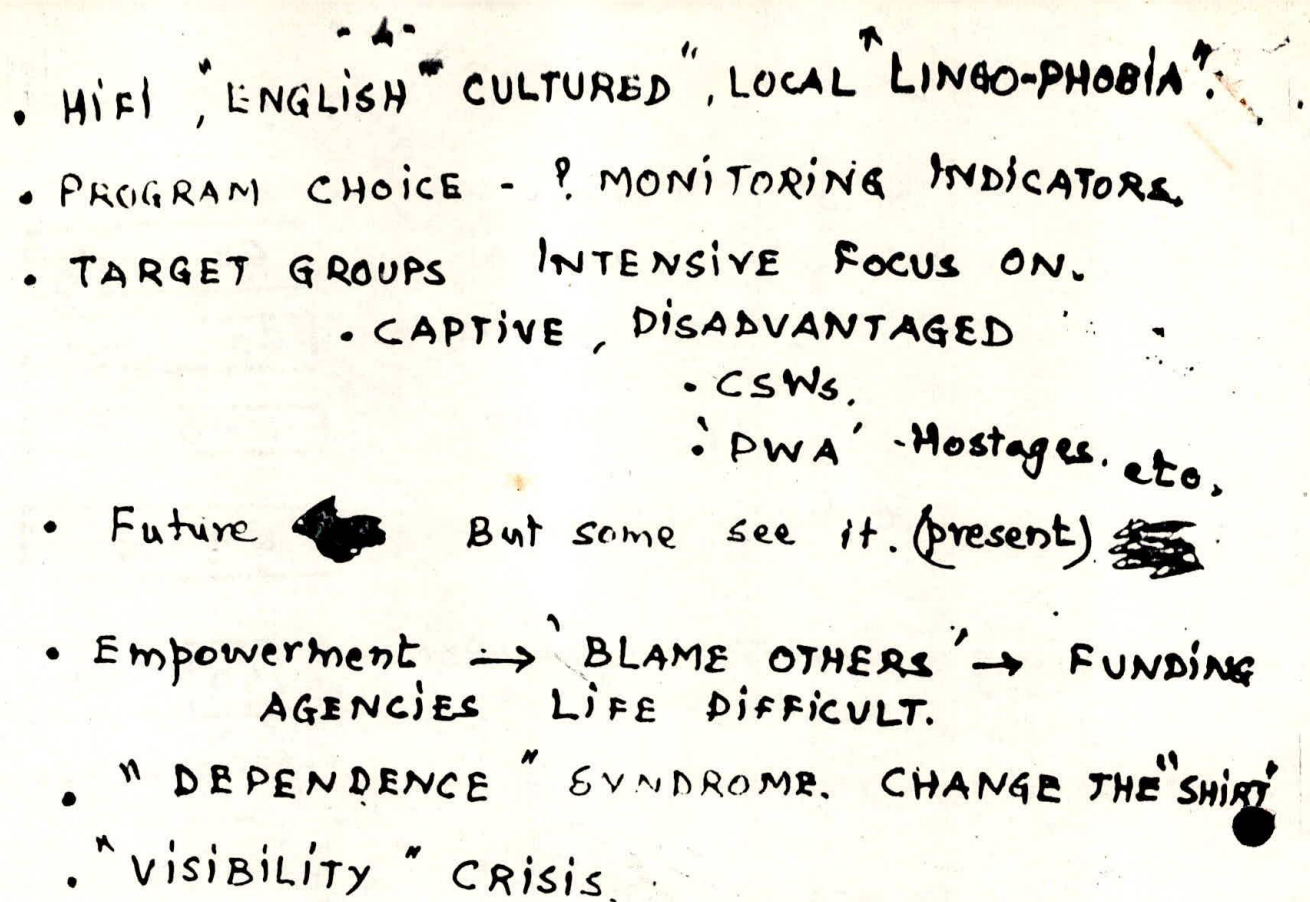 - 4 -
• HiFi, "ENGLISH" CULTURED", LOCAL "LINGO-PHOBIA".
• PROGRAM CHOICE - ? MONITORING INDICATORS.
• TARGET GROUPS INTENSIVE FOCUS ON.
• CAPTIVE, DISADVANTAGED
• CSWs.
• 'PWA' - Hostages. etc,
• Future But some see it. (present)
• Empowerment → 'BLAME OTHERS' → FUNDING
AGENCIES LIFE DIFFICULT.
• "DEPENDENCE" SYNDROME. CHANGE THE "SHIRT"
• "VISIBILITY" CRISIS.